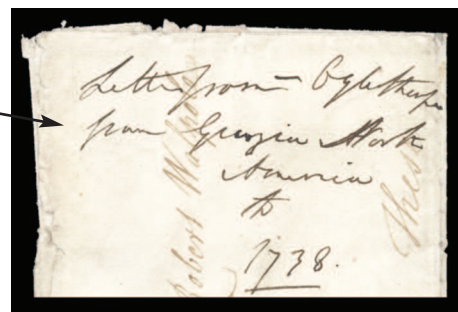 Letter from Oglethorpe
from Georgia North
America
to
1738.
Robert Walpole